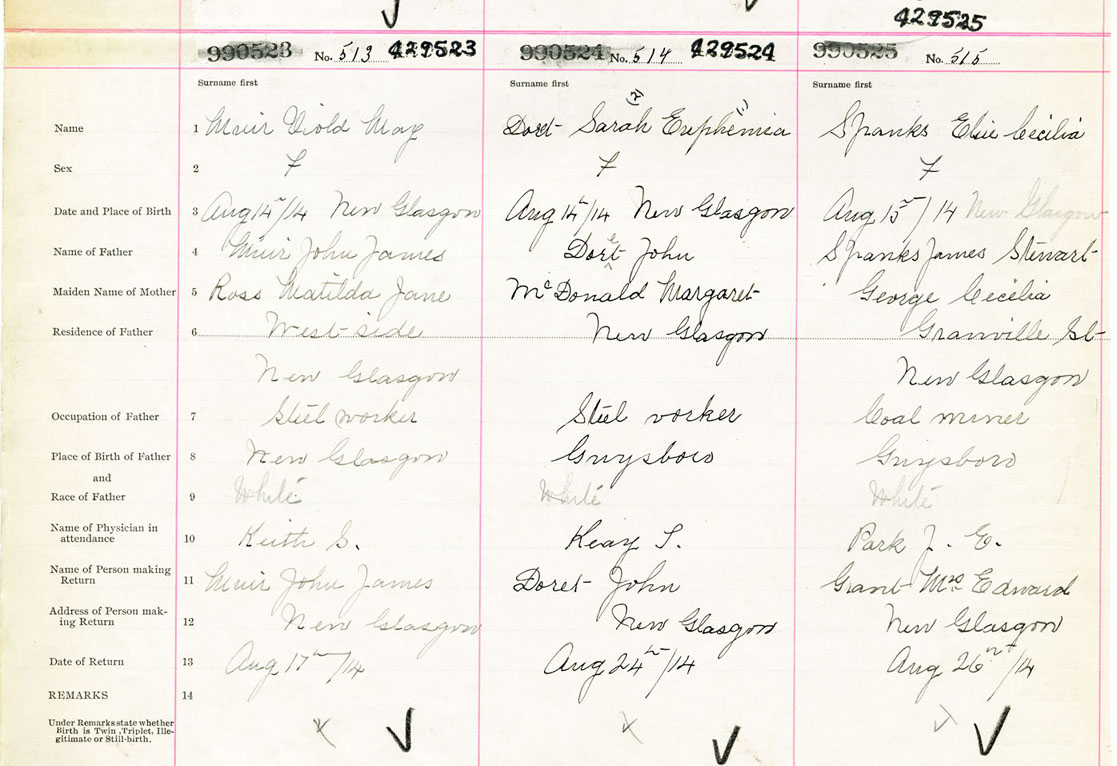 429525
990523 No. 513 429523 990524 No. 514 429524 990525 No. 515
Surname first Surname first Surname first
Name 1 Muir Viold May Doret Sarah Euphemia Spanks Elsie Cecilia
Sex 2 F F F
Date and Place of Birth 3 Aug 14th/14 New Glasgow Aug 14/14 New Glasgow Aug 15th/14 New Glasgow
Name of Father 4 Muir John James Doret John Spanks James Stewart
Maiden Name of Mother 5 Ross Matilda Jane McDonald Margaret George Cecilia
Residence of Father 6 West side New Glasgow Granville St
New Glasgow New Glasgow
Occupation of Father 7 Steel worker Steel worker Coal miner
Place of Birth of Father 8 New Glasgow Guysboro Guysboro
and
Race of Father 9 White White White
Name of Physician in
attendance 10 Keith S. Keay T. Park J. E.
Name of Person making
Return 11 Muir John James Doret John Grant Mrs Edward
Address of Person mak-
ing Return 12 New Glasgow New Glasgow New Glasgow
Date of Return 13 Aug 17th/14 Aug 24th/14 Aug 26th/14
REMARKS 14
Under Remarks state whether
Birth is Twin, Triplet, Ille-
gitimate or Still-birth.